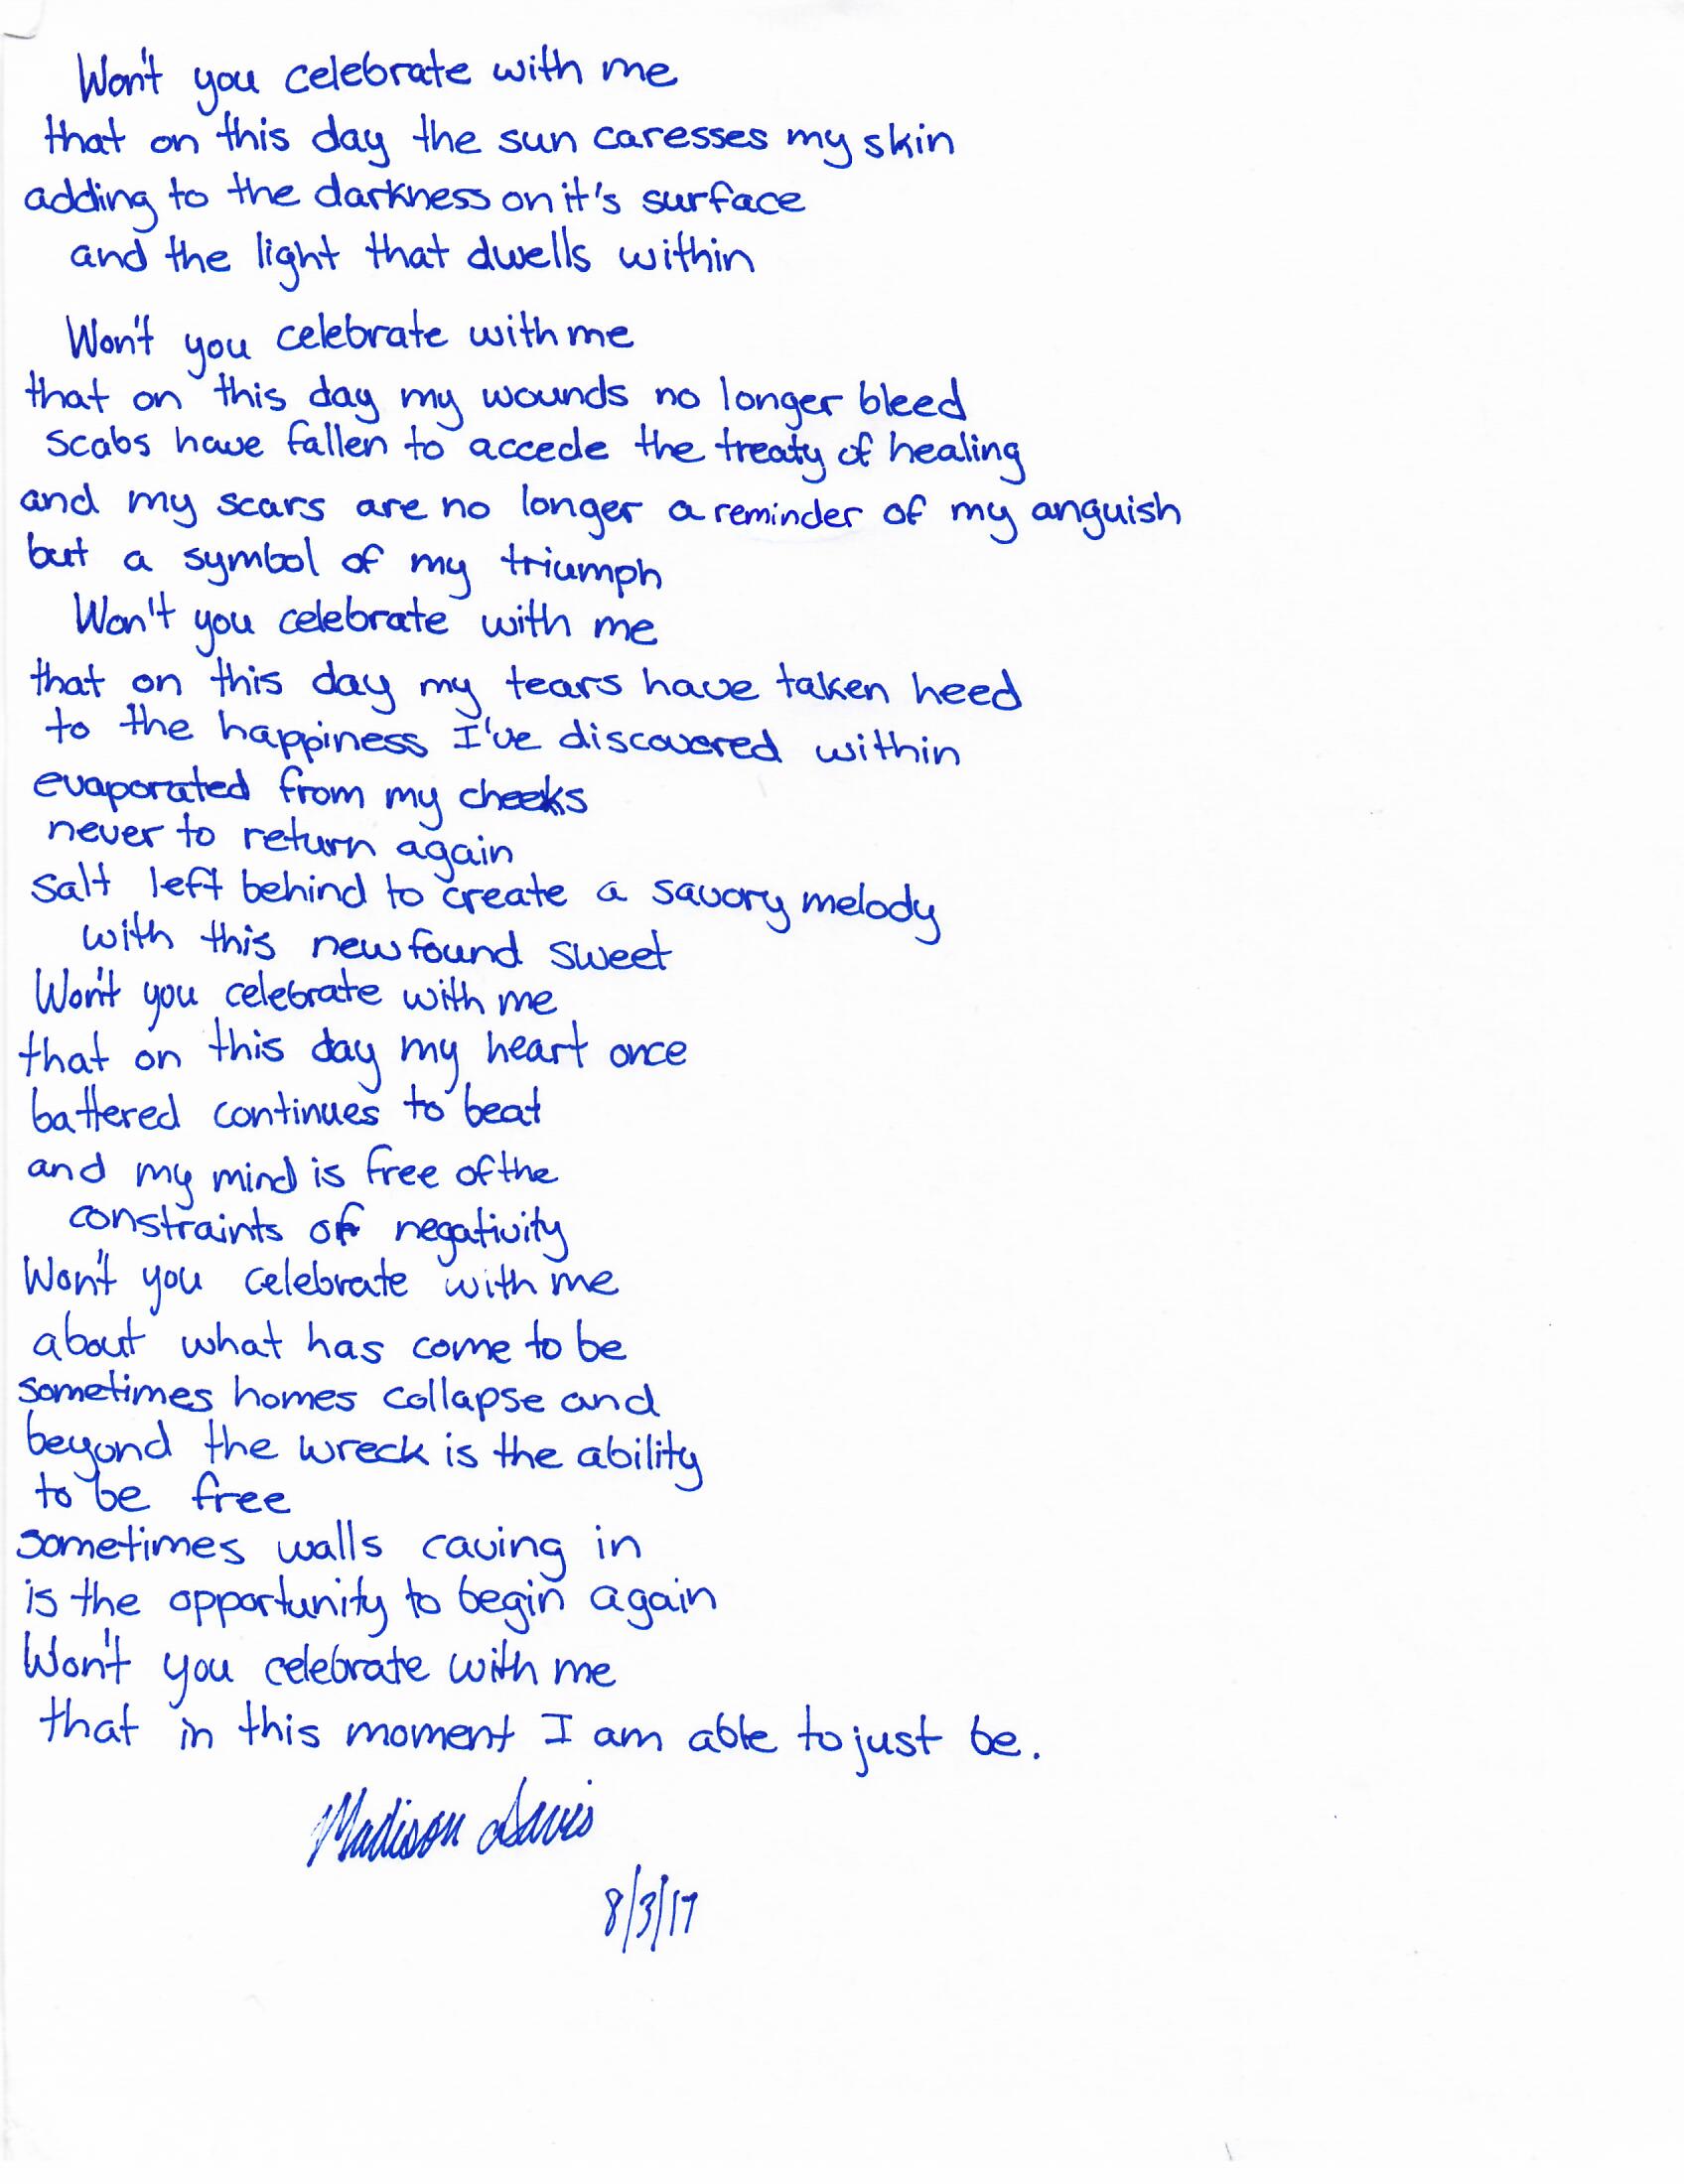 Won't you celebrate with me
that on this day the sun caresses my skin
adding to the darkness on it's surface
and the light that dwells within
Won't you celebrate with me
that on this day my wounds no longer bleed
scabs have fallen to accede the treaty of healing
and my scars are no longer a reminder of my anguish
but a symbol of my triumph
Won't you celebrate with me
that on this day my tears have taken heed
to the happiness I've discovered within
evaporated from my cheeks
never to return again
salt left behind to create a savory melody
with this newfound sweet
Won't you celebrate with me
that on this day my heart once
battered continues to beat
and my mind is free of the
constraints of negativity
Won't you celebrate with me
about what has come to be
sometimes homes collapse and
beyond the wreck is the ability
to be free
sometimes walls caving in
is the opportunity to begin again
Won't you celebrate with me
that in this moment I am able to just be.
Madison Davis
8/3/17